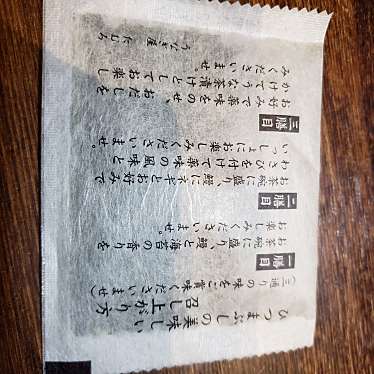 ひつまぶしの美味しい
召し上がり方
(三通りの味をご賞味くださいませ)
一膳目
お茶碗に盛り、鰻と海苔の香りを
お楽しみくださいませ。
二膳目
お茶碗に盛り、鰻にネギとお好みで
わさびを付けて薬味の風味と
いっしょにお楽しみくださいませ。
三膳目
お好みで薬味をのせ、おだしを
かけてうなぎ茶漬けとしてお楽し
みくださいませ。
うなぎ屋 たむろ